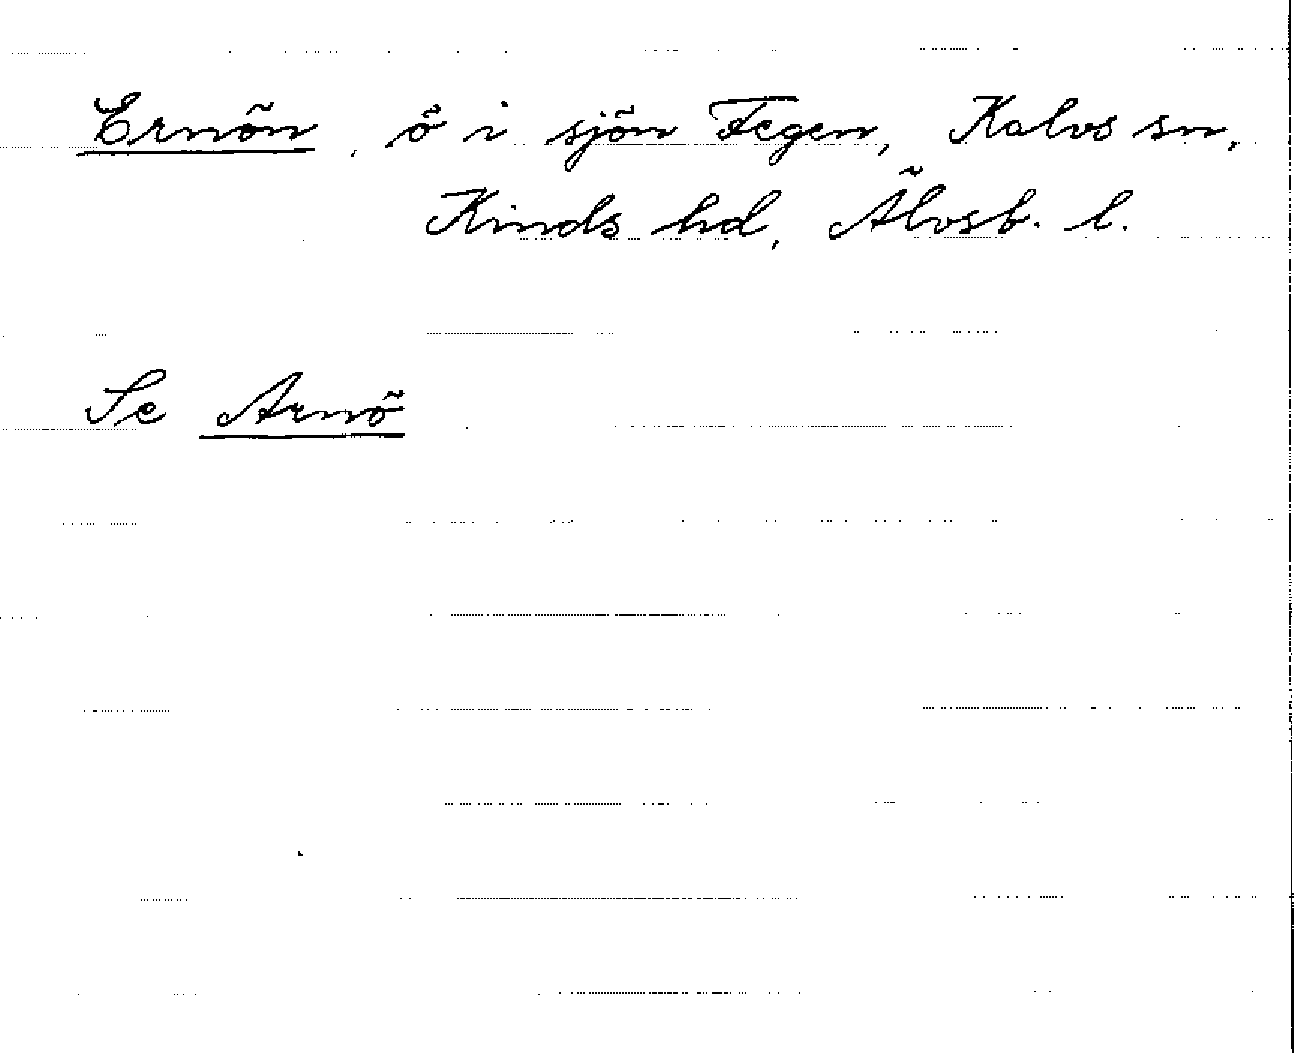 Ernön, ö i sjön Fegen, Kalvs sn,
Kinds hd, Älvsb. l.
Se Arnö